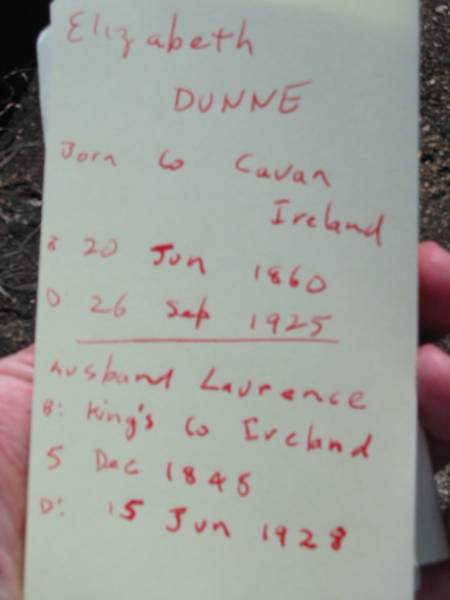 Elizabeth
DUNNE
Born Co Cavan
Ireland
B 20 Jun 1860
D 26 Sep 1925
Husband Laurence
B: King's Co Ireland
5 Dec 1846
D: 15 Jun 1928